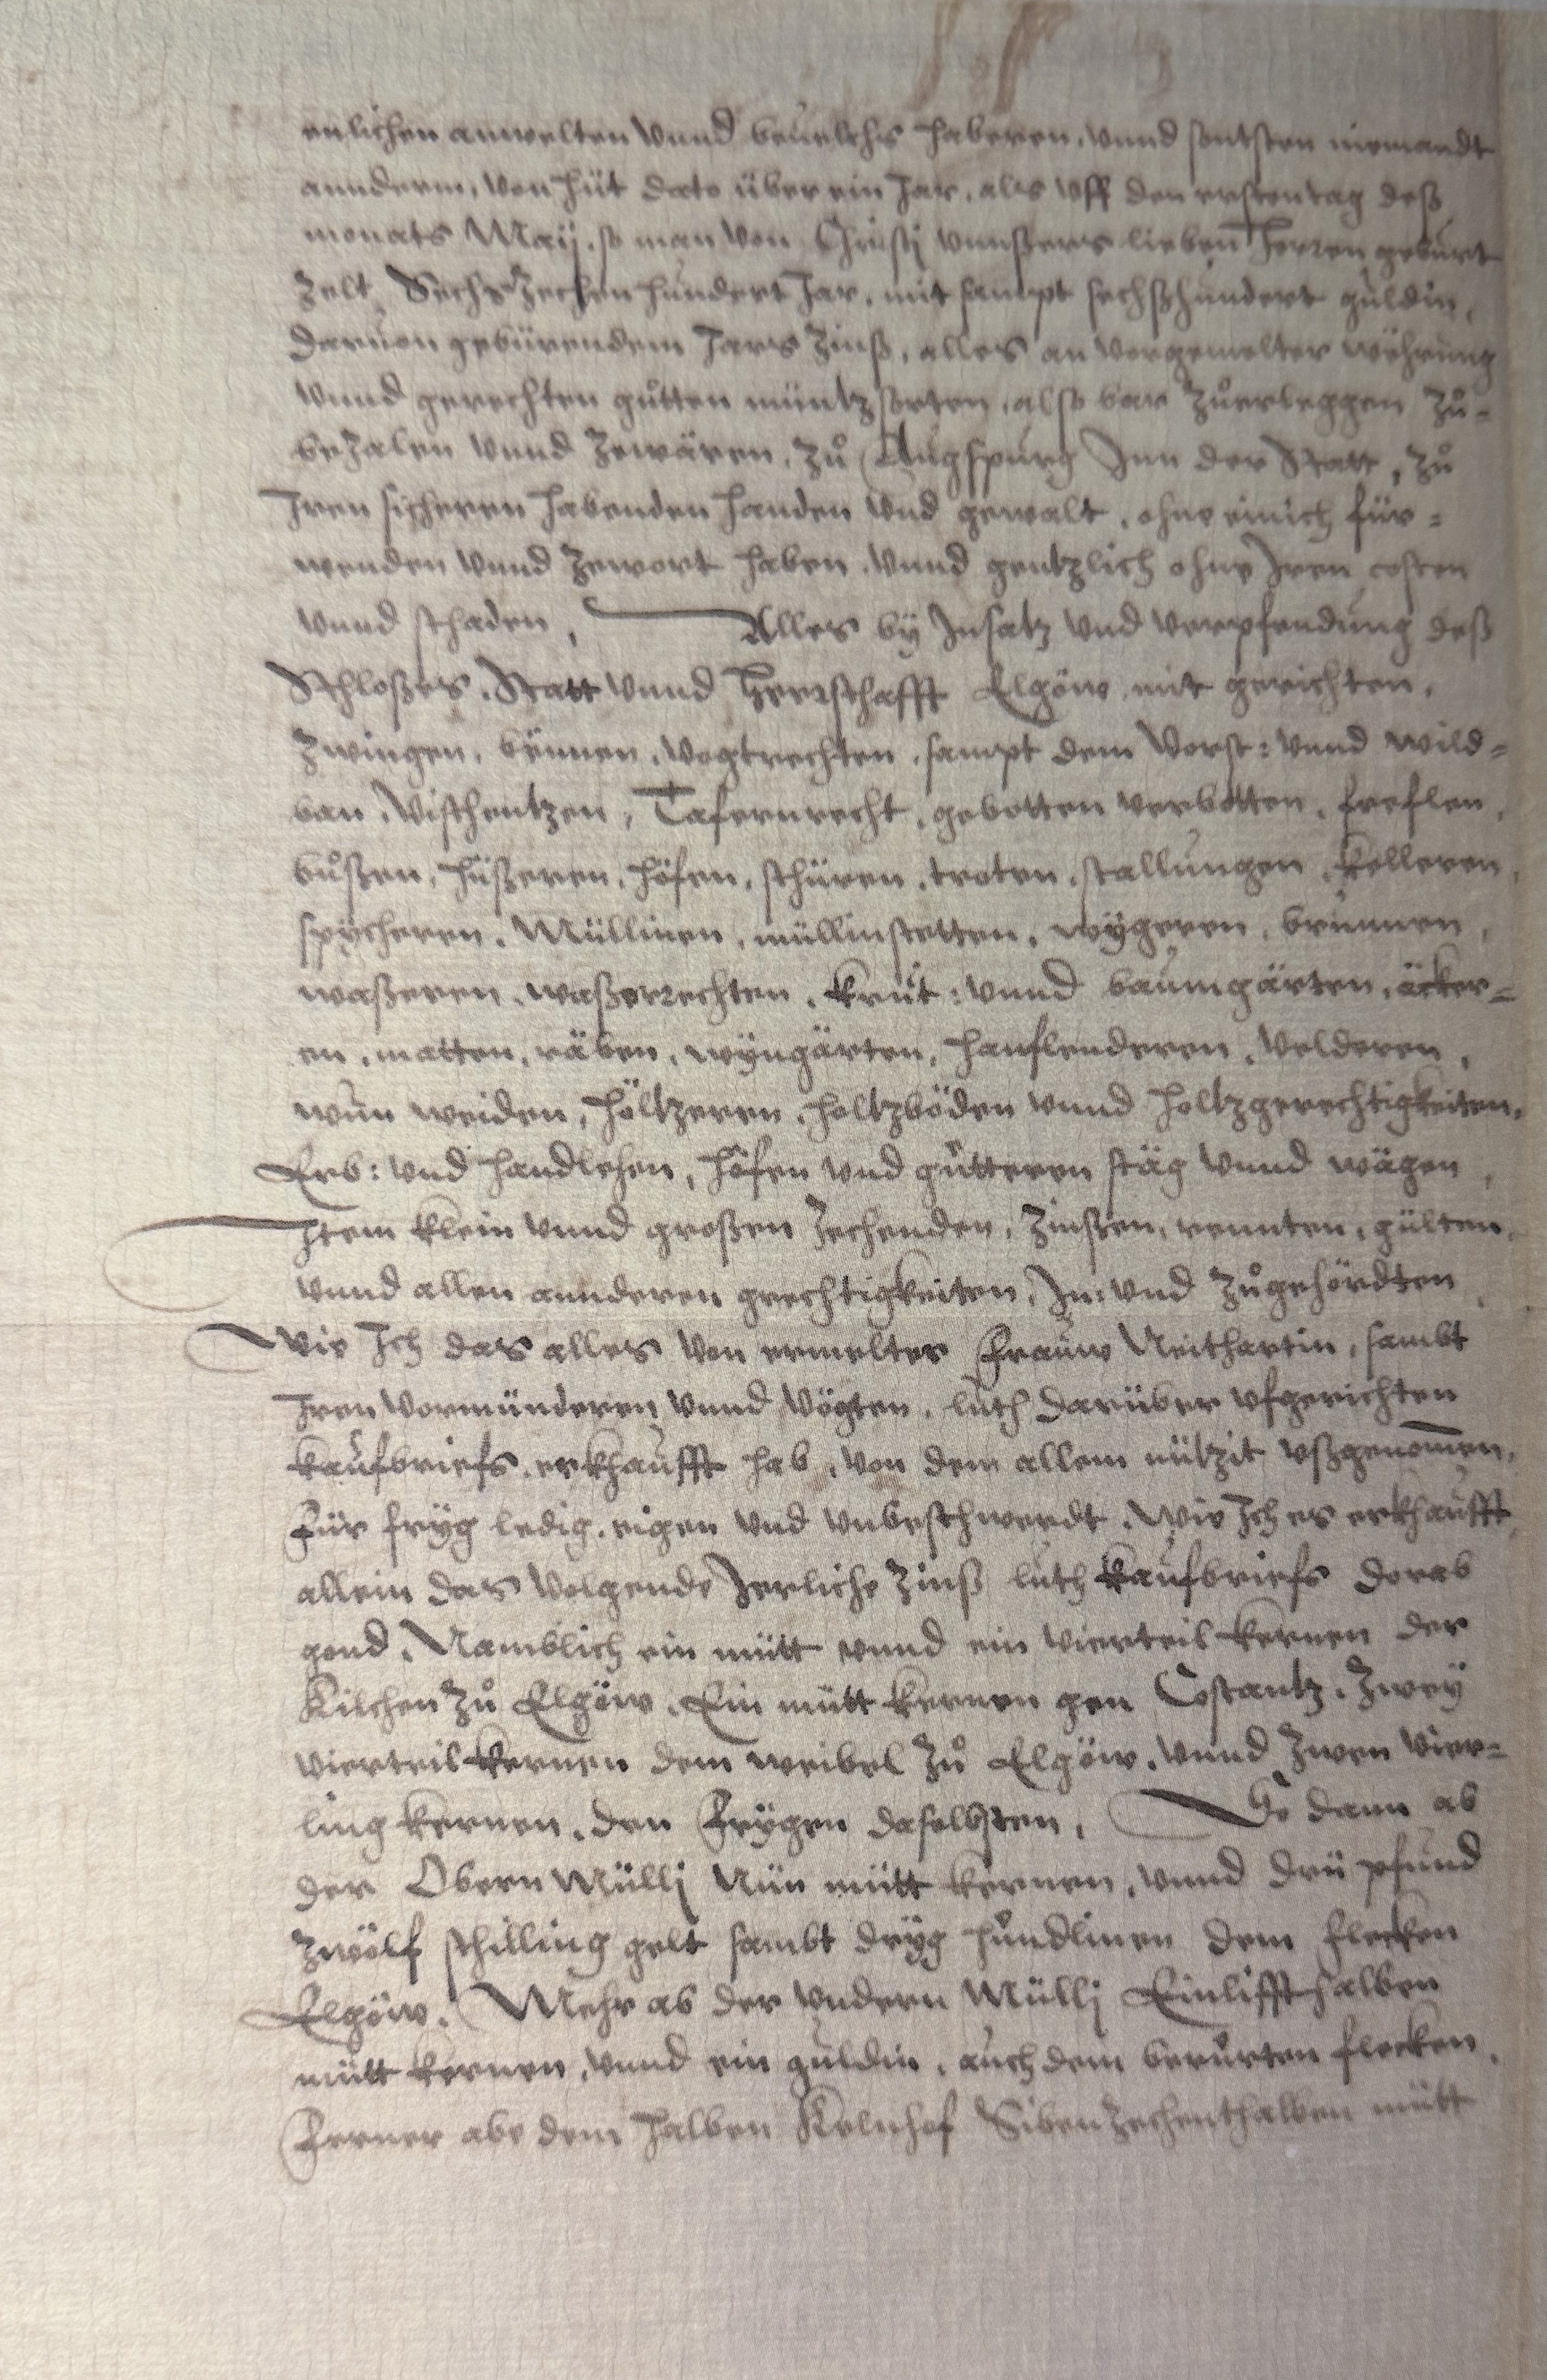 enlichen anwelten vnnd beuelchs haberen, vnnd sontsten niemandt
annderm, von hüt dato über ein Jar, als vff den ersten tag deß
monats Maij, so man von Christj vnnßers lieben Herren geburt
Zelt, Sechszechenhundert Jar, mit sampt sechßhundert guldin,
daruon gebürendem Jars Zinß, alles an vorgemelter währung
vnnd gerechten gůtten müntzsorten, also bar Zůerleggen Zů-
bezalen vnnd Zewären, Zů Augspurg Jnn der Statt, Zů
Jren sicheren habenden handen vnd gewalt, ohne einich für-
wenden vnnd Zewort haben, vnnd gentzlich ohne Jren costen
vnnd schaden, Alles by Jnsatz vnd verpfendung deß
Schloßes, Statt vnnd Herrschafft Elgöw, mit gerichten,
Zwingen, bënnen, Vogtrechten, sampt dem Vorst: vnnd wild-
ban, Vischentzen, Tafernrecht, gebotten verbotten, freflen,
bůßen, hüßeren, höfen, schüren, trotten, stallungen, kelleren,
spÿcheren, Müllinen, müllinstetten, wÿgeren, brunnen,
waßeren, waßerrechten, krut: vnnd baumgärten, äcker-
en, matten, räben, wÿngärten, hanflenderen, veldern,
wun weiden, höltzeren, holtzböden vnnd holtzgerechtigkeiten,
Erb: vnd handlehen, höfen vnd gůtteren stäg vnnd wägen,
Jtem klein vnnd großen Zechenden, Zinßen, rennten, gülten,
vnnd allen annderen grechtigkeiten, Jn: vnd Zůgehördten
Wie Jch das alles von ermelter Frauw Neithartin, sambt
Jren Vormünderen vnnd Vögten, luth darüber vfgerichten
kaufbriefs, erkhaufft hab, von dem allem nützit vßgenomen,
Für frÿg ledig, eigen vnd vnbeschwerdt, wie Jch es erkhaufft
allein das volgende Jerliche Zinß luth kaufbriefs dorab
gond, Namblich ein mütt vnnd ein vierteil kernen der
Kilchen Zů Elgöw, Ein mütt kernen gen Costantz, Zweÿ
vierteil kernen dem weibel Zů Elgöw, vnnd Zwen vier-
ling kernen, den Frÿgen daselbsten, So dann ab
der Obern Müllj Nün mütt kernen, vnnd drü pfund
Zwölf schilling gelt sambt drÿg hůndlinen dem flecken
Elgöw. Mehr ab der vndern Müllj Einlifft halben
mütt kernen, vnnd ein guldin, auch dem berůrten flecken,
Ferner abe dem halben Kelnhof Sibenzechenthalben mütt